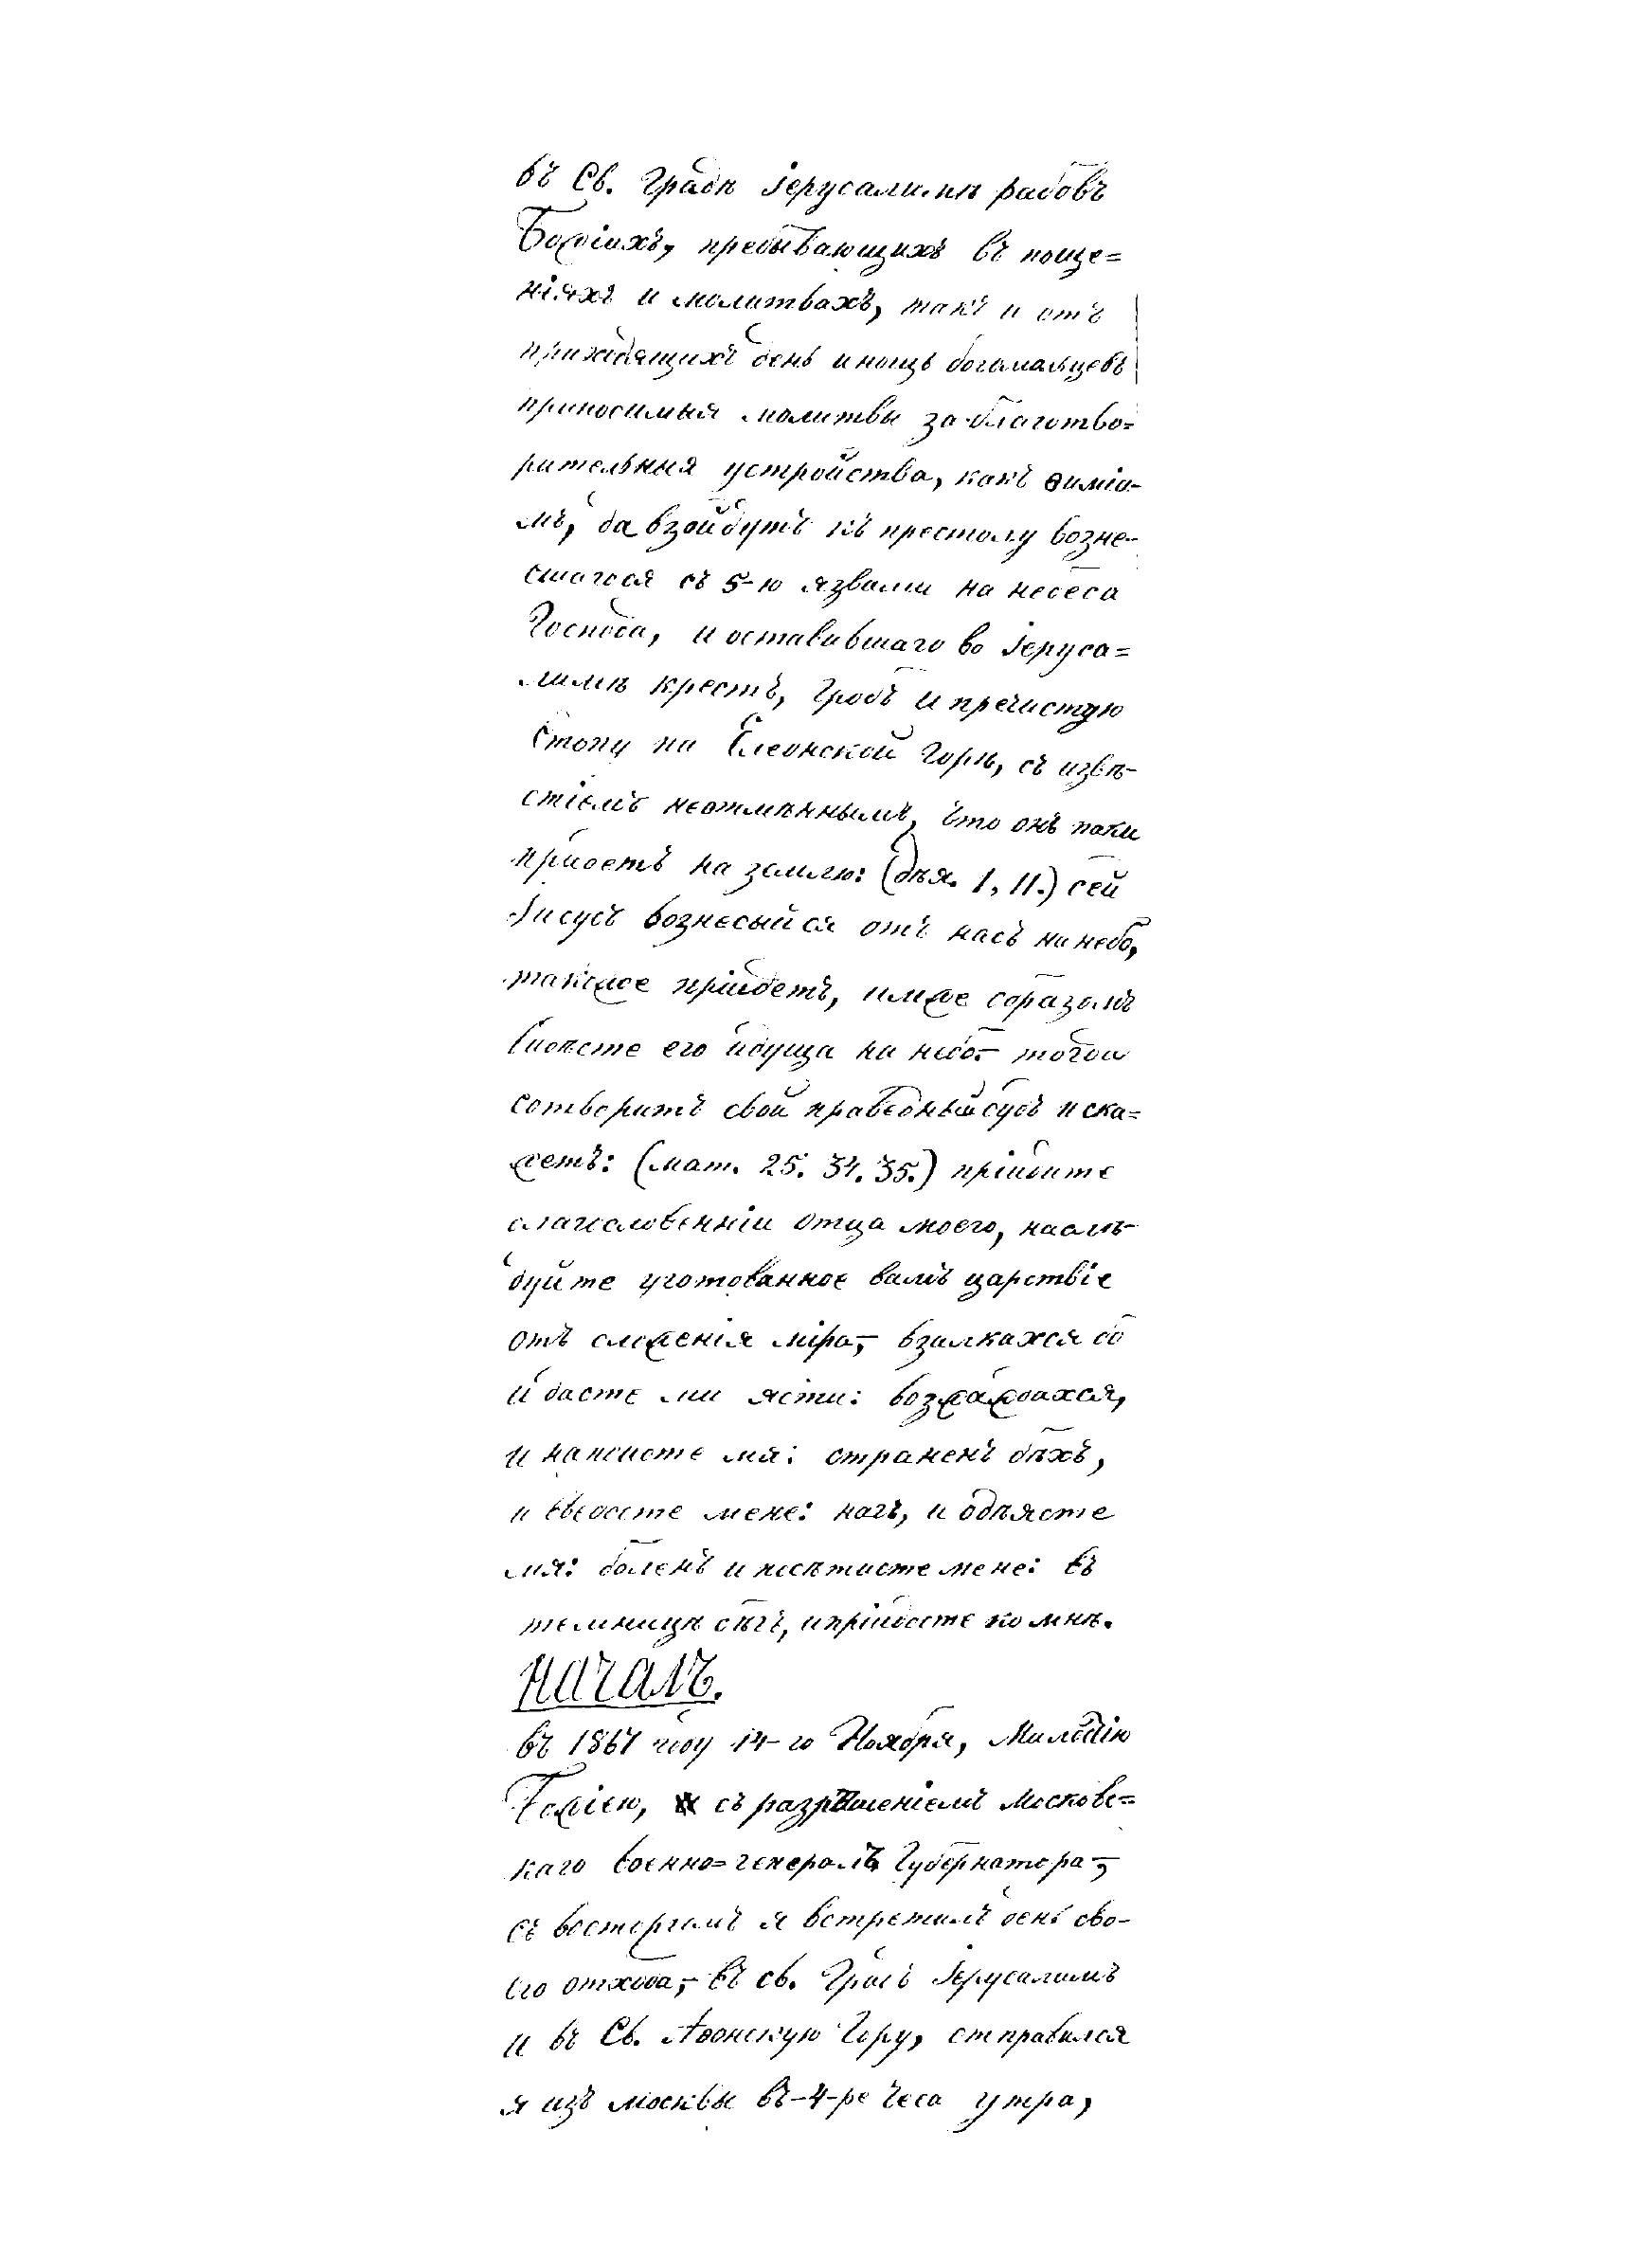 въ Св. Градѣ Іерусалимѣ рабовъ
Божіихъ, пребывающихъ въ поще=
ніяхъ и молитвахъ, такъ и отъ
приходящихъ день и нощь богомольцевъ
приносимыя молитвы за благотво=
рительныя устройства, какъ ѳиміа-
мъ, да взойдутъ къ престолу возне-
сшагося съ 5-ю язвами на небеса
Господа, и оставившаго во Іеруса=
лимѣ крестъ, Гробъ и пречистую
Стопу на Елеонской Горѣ, съ извѣ-
стіемъ неотмѣннымъ, что онъ паки
пріидетъ на землю: (Дѣя. 1, 11.) сей
Іисусъ вознесыйся отъ насъ на небо,
такожде пріидетъ, имже образомъ
видѣсте его идуща на небо:- тогда
сотворитъ свой праведный судъ и ска=
жетъ: (мат. 25. 34. 35.) пріидите
благословенніи отца моего, наслѣ-
дуйте уготованное вамъ царствіе
отъ сложенія міра,- взалкахся бо
и дасте ми ясти: возжаждахся,
и напоисте мя: страненъ бѣхъ,
и введосте мене: нагъ, и одѣясте
мя: боленъ и посѣтисте мене: въ
темницѣ бѣхъ, и пріидосте ко мнѣ.
Началъ.
въ 1861 году 14-го Ноября, Милостію
Божіею, съ разрѣшеніемъ Московс=
каго военно=генералъ Губернатора,-
съ восторгомъ я встретилъ день сво-
его отхода,- въ св. Градъ Іерусалимъ
и въ Св. Аѳонскую Гору, отправился
я изъ москвы въ-4-ре часа утра,